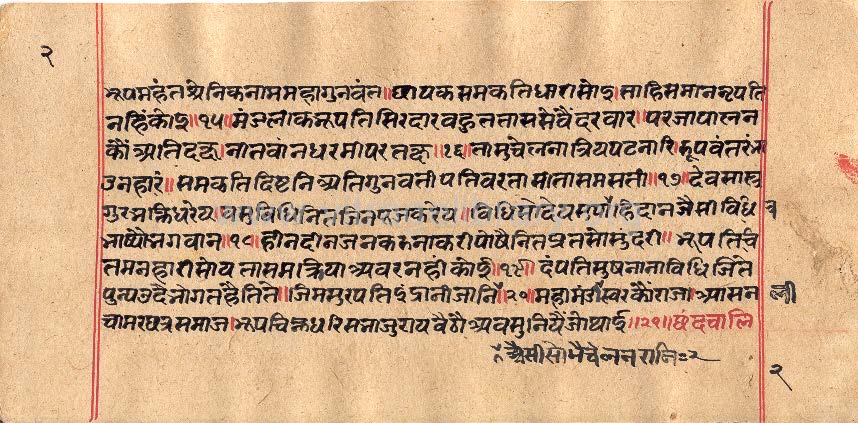 २
भूपमहंत श्रेनिकनाममहागुनवंत॥ षायकसमकतिधारीसोइ॥ ताहिसमाननृपति
नहिंकोइ॥१५॥ मंडलीकनृपतिसिरदार बहुततासेवैंदरबार॥ परजापालन
कौंअतिदक्ष॥ नीतवांनधरमीपरतक्ष॥१६॥ तासुचेलनात्रियपटनारि॥ रूपवंत
उनहारं॥ समकतिदिष्टनिअतिगुनवती पतिवरतासीतासमसती॥१७॥ देवसास्त्र
गुरभक्तिधरेय वसुविधिनितजिनपूजकरेय॥ विधिसोदेयसुपात्रहिदान जैसीविधि
भाष्यौभगवान॥१८॥ हीनदीनजनकरुनाकरी पोषैनितप्रतसोसुंदरी॥ भूपतिचि
तमनहारीसोय तासमत्रियाअवरनहींकोई॥१९॥ दंपतिसुषनानाविधिजिते
पुन्यउदैभोगतहैतिते॥ जिमसुरपतिइंद्रानीजानि ॥२०॥ महामंडलीस्वरकौराजा॥ आसन
ली
चामरछत्रसमाज॥ भूपचिह्नधरिसभाजुराय बैठौअवसुनियैंजोथाई॥२१॥ छंदचालि
ऐसीसोभैचेलनरानि=२
२